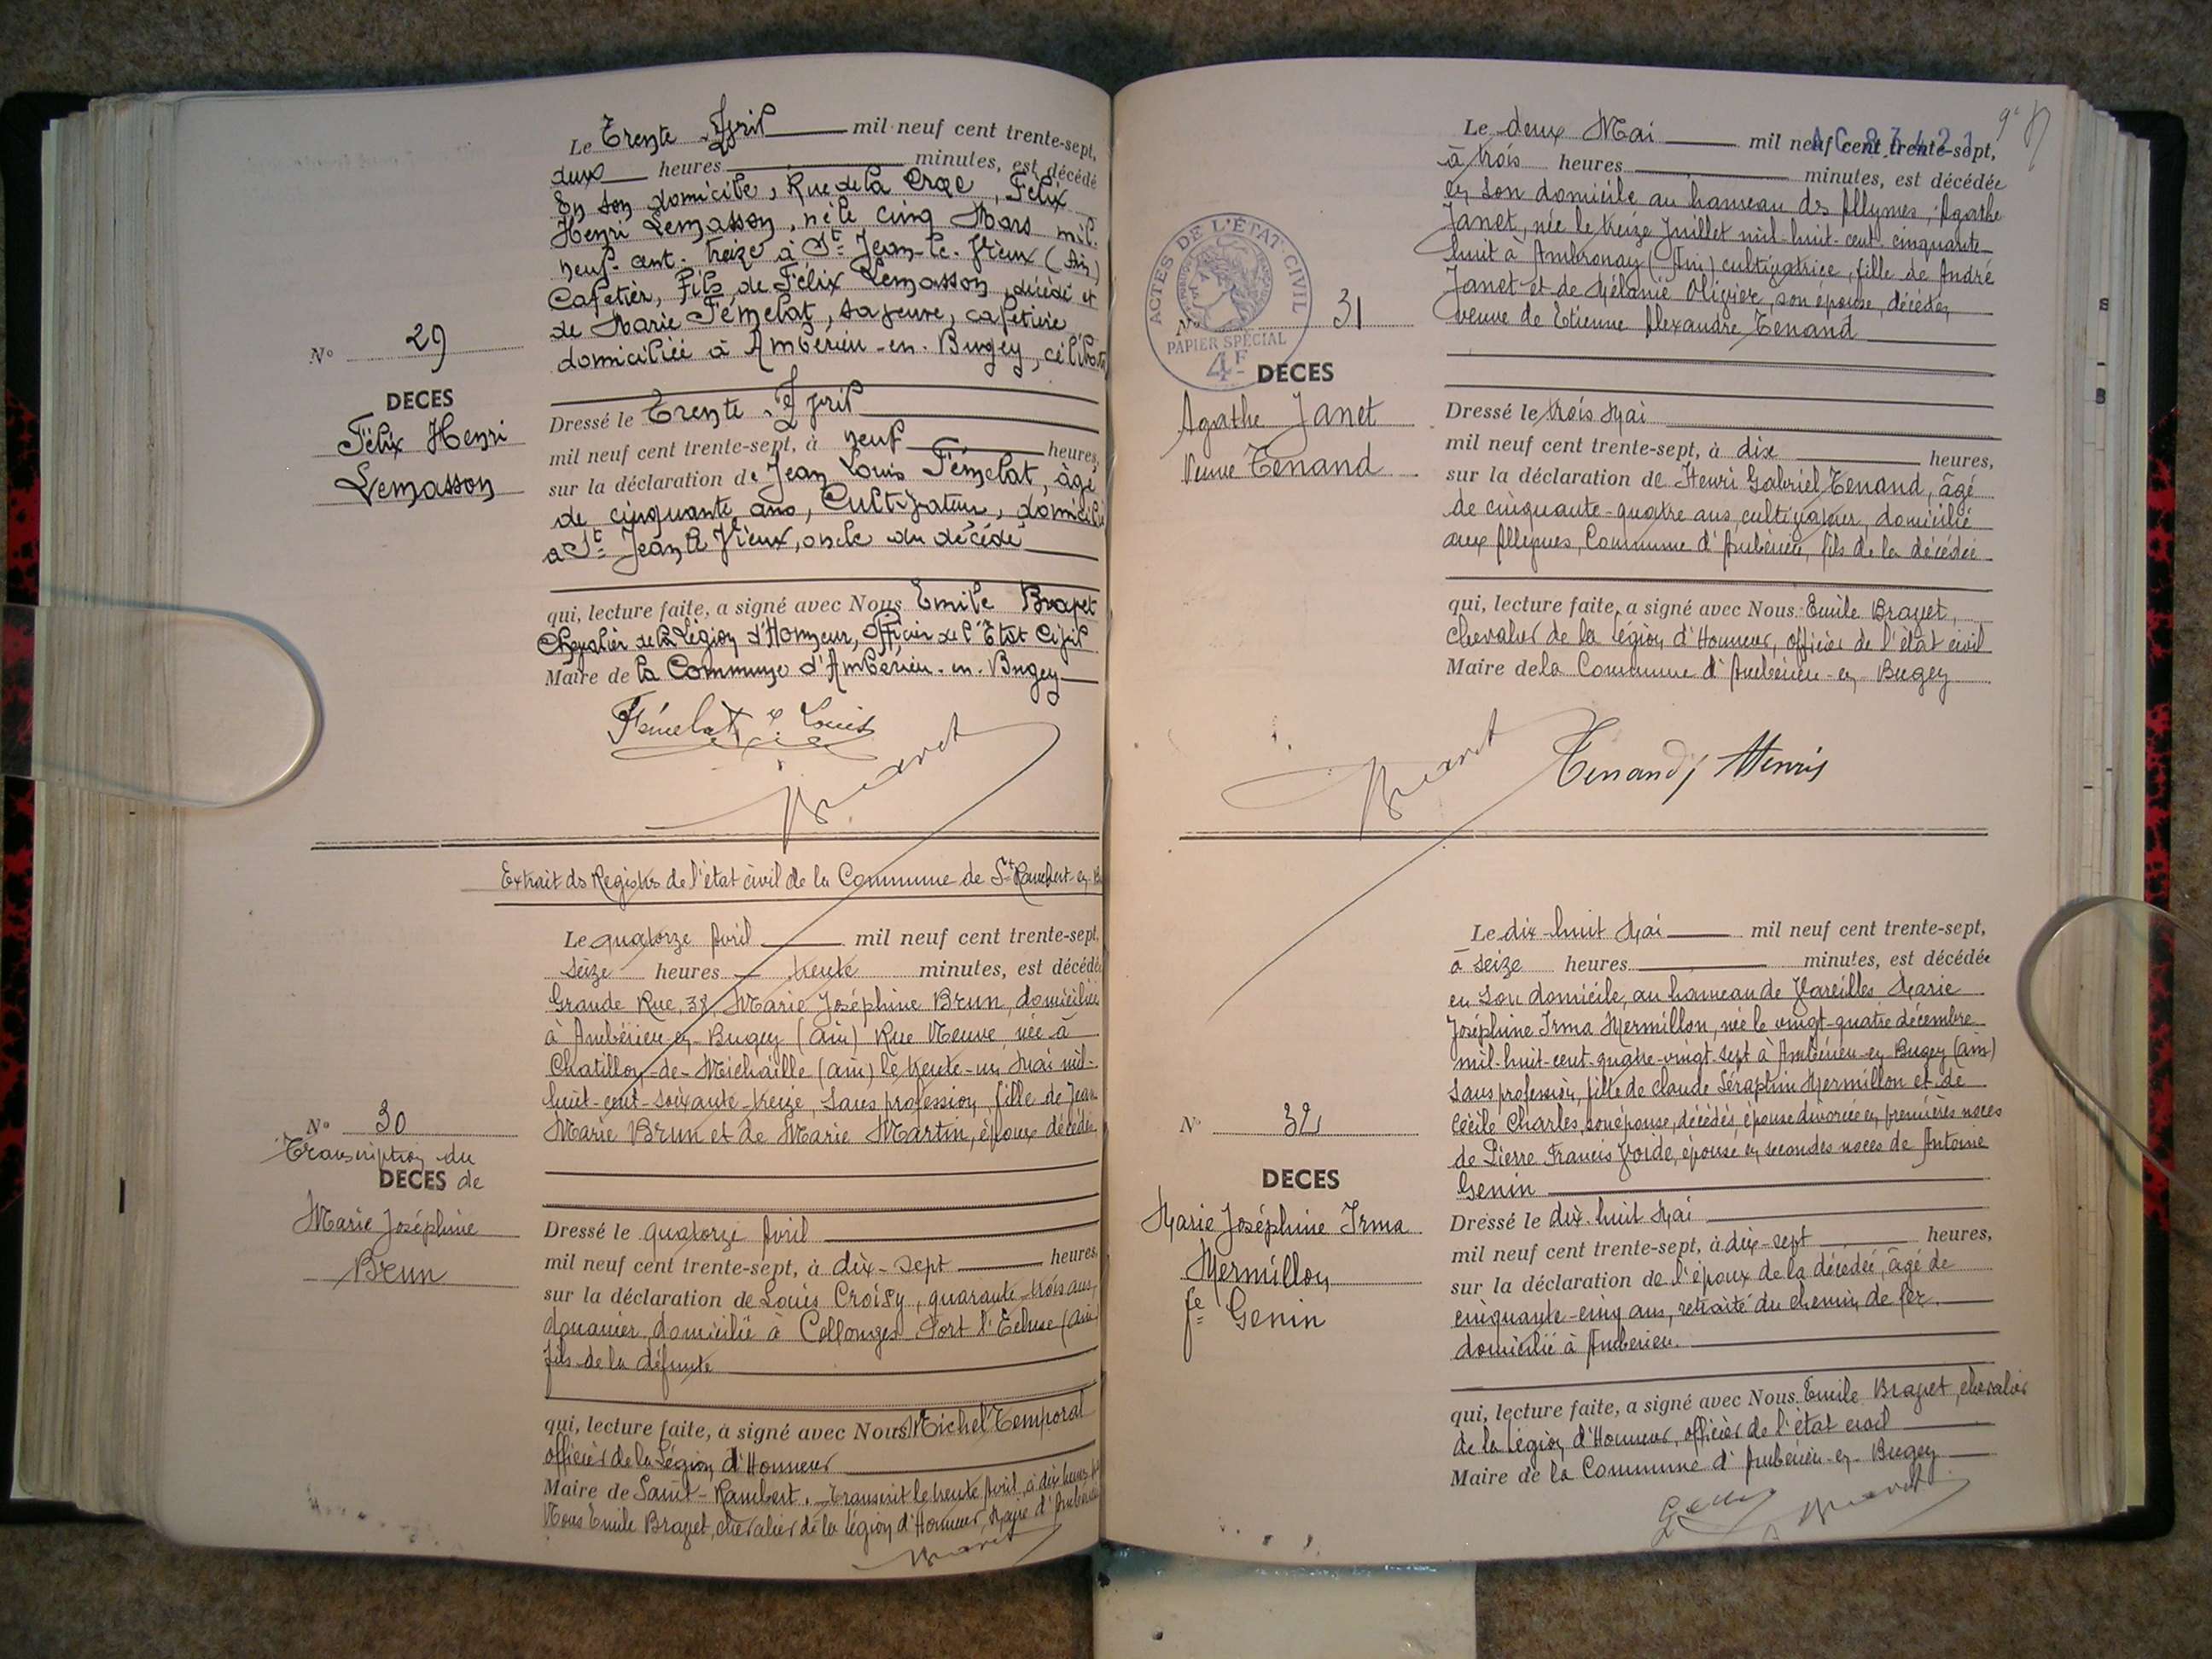 Le Trente Avril mil neuf cent trente-sept,
deux heures minutes, est décédé
En son domicile, Rue de la Félix
Henri Lemasson, né le cinq Mars mil
neuf cent treize à St Jean-le-Vieux (Ain)
Cafetier, Fils de Félix Lemasson, décédé et
de Marie Fémelat, sa veuve, cafetière
domiciliée à Ambérieu-en-Bugey, céliba
N° 29
DECES
Félix Henri
Lemasson
Dressé le Trente Avril
mil neuf cent trente-sept, à neuf heures,
sur la déclaration de Jean Louis Fémelat, âgé
de cinquante ans, Cultivateur, domicilié
à St Jean le Vieux, oncle du décédé
qui, lecture faite, a signé avec Nous Emile Bravet
Chevalier de la Légion d'Honneur, Officier de l'Etat Civil
Maire de la Commune d'Ambérieu-en-Bugey
Fémelat Louis
Bravet
Extrait des Registres de l'état civil de la Commune de St Rambert-en-B
Le quatorze Avril mil neuf cent trente-sept,
seize heures trente minutes, est décédée
Grande Rue, 38, Marie Joséphine Brun, domiciliée
à Ambérieu-en-Bugey (Ain) Rue Neuve, née à
Chatillon-de-Michaille (Ain) le trente-un Mai mil-
huit-cent-soixante-treize, sans profession, fille de Jean
Marie Brun et de Marie Martin, époux décédés
N° 30
Transcription du
DECES de
Marie Joséphine
Brun
Dressé le quatorze Avril
mil neuf cent trente-sept, à dix-sept heures,
sur la déclaration de Louis Croisy, quarante-trois ans,
douanier, domicilié à Collonges Fort l'Ecluse (Ain)
fils de la défunte
qui, lecture faite, a signé avec Nous Michel Temporal
officier de la Légion d'Honneur
Maire de Saint-Rambert. Transcrit le trente Avril à dix heures
Nous Emile Bravet, chevalier de la légion d'Honneur, Maire d'Ambérieu
Bravet
9e
Le deux Mai mil neuf cent trente-sept,
à trois heures minutes, est décédée
en son domicile au hameau des Allymes, Agathe
Janet, née le treize Juillet mil-huit-cent-cinquante-
huit à Ambronay (Ain) cultivatrice, fille de André
Janet et de Mélanie Olivier, son épouse, décédés,
veuve de Etienne Alexandre Tenand
ACTES DE L'ÉTAT-CIVIL
PAPIER SPÉCIAL
4F
N° 31
DECES
Agathe Janet
Veuve Tenand
Dressé le trois Mai
mil neuf cent trente-sept, à dix heures,
sur la déclaration de Henri Gabriel Tenand, âgé
de cinquante-quatre ans, cultivateur, domicilié
aux Allymes, Commune d'Ambérieu, fils de la décédée
qui, lecture faite, a signé avec Nous Emile Bravet,
chevalier de la légion d'Honneur, officier de l'état civil
Maire de la Commune d'Ambérieu-en-Bugey
Bravet Tenand Henri
Le dix-huit Mai mil neuf cent trente-sept,
à seize heures minutes, est décédée
en son domicile, au hameau de Vareilles Marie
Joséphine Irma Mermillon, née le vingt-quatre décembre
mil-huit-cent-quatre-vingt-sept à Ambérieu-en-Bugey (Ain)
sans profession, fille de Claude Séraphin Mermillon et de
Cécile Charles, son épouse, décédés, épouse divorcée en premières noces
de Pierre Francis Joide, épouse en secondes noces de Antoine
Genin
N° 32
DECES
Marie Joséphine Irma
Mermillon
fe Genin
Dressé le dix-huit Mai
mil neuf cent trente-sept, à dix-sept heures,
sur la déclaration de l'époux de la décédée, âgé de
cinquante-cinq ans, retraité du chemin de fer.
domicilié à Ambérieu.
qui, lecture faite, a signé avec Nous Emile Bravet, chevalier
de la légion d'Honneur, officier de l'état civil
Maire de la Commune d'Ambérieu-en-Bugey
Bravet